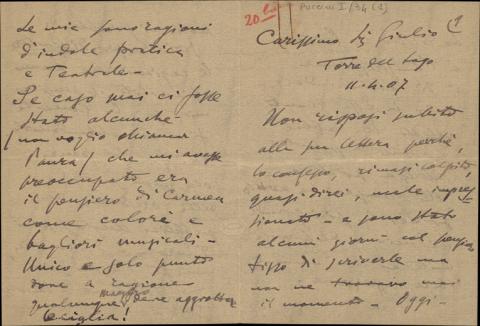 20
Puccini I/34 (1)
(1
Carissimo Sig Giulio
Torre del Lago
11.4.07
Non risposi subito
alla sua lettera perchè,
lo confesso, rimasi colpito,
quasi direi, male impres
sionato - e sono stato
alcuni giorni col pensiero
fisso di scriverle ma
non ne trovavo mai
il momento - Oggi -
Le mie sono ragioni
d'indole pratica
e Teatrale -
Se caso mai ci fosse
stato alcunchè
(non voglio chiamar
paura) che mi avesse
preoccupato era
il pensiero di Carmen
come colore e
bagliori musicali -
Unico e solo punto
dove a ragione
qualunque maestro deve aggrottar
le ciglia!